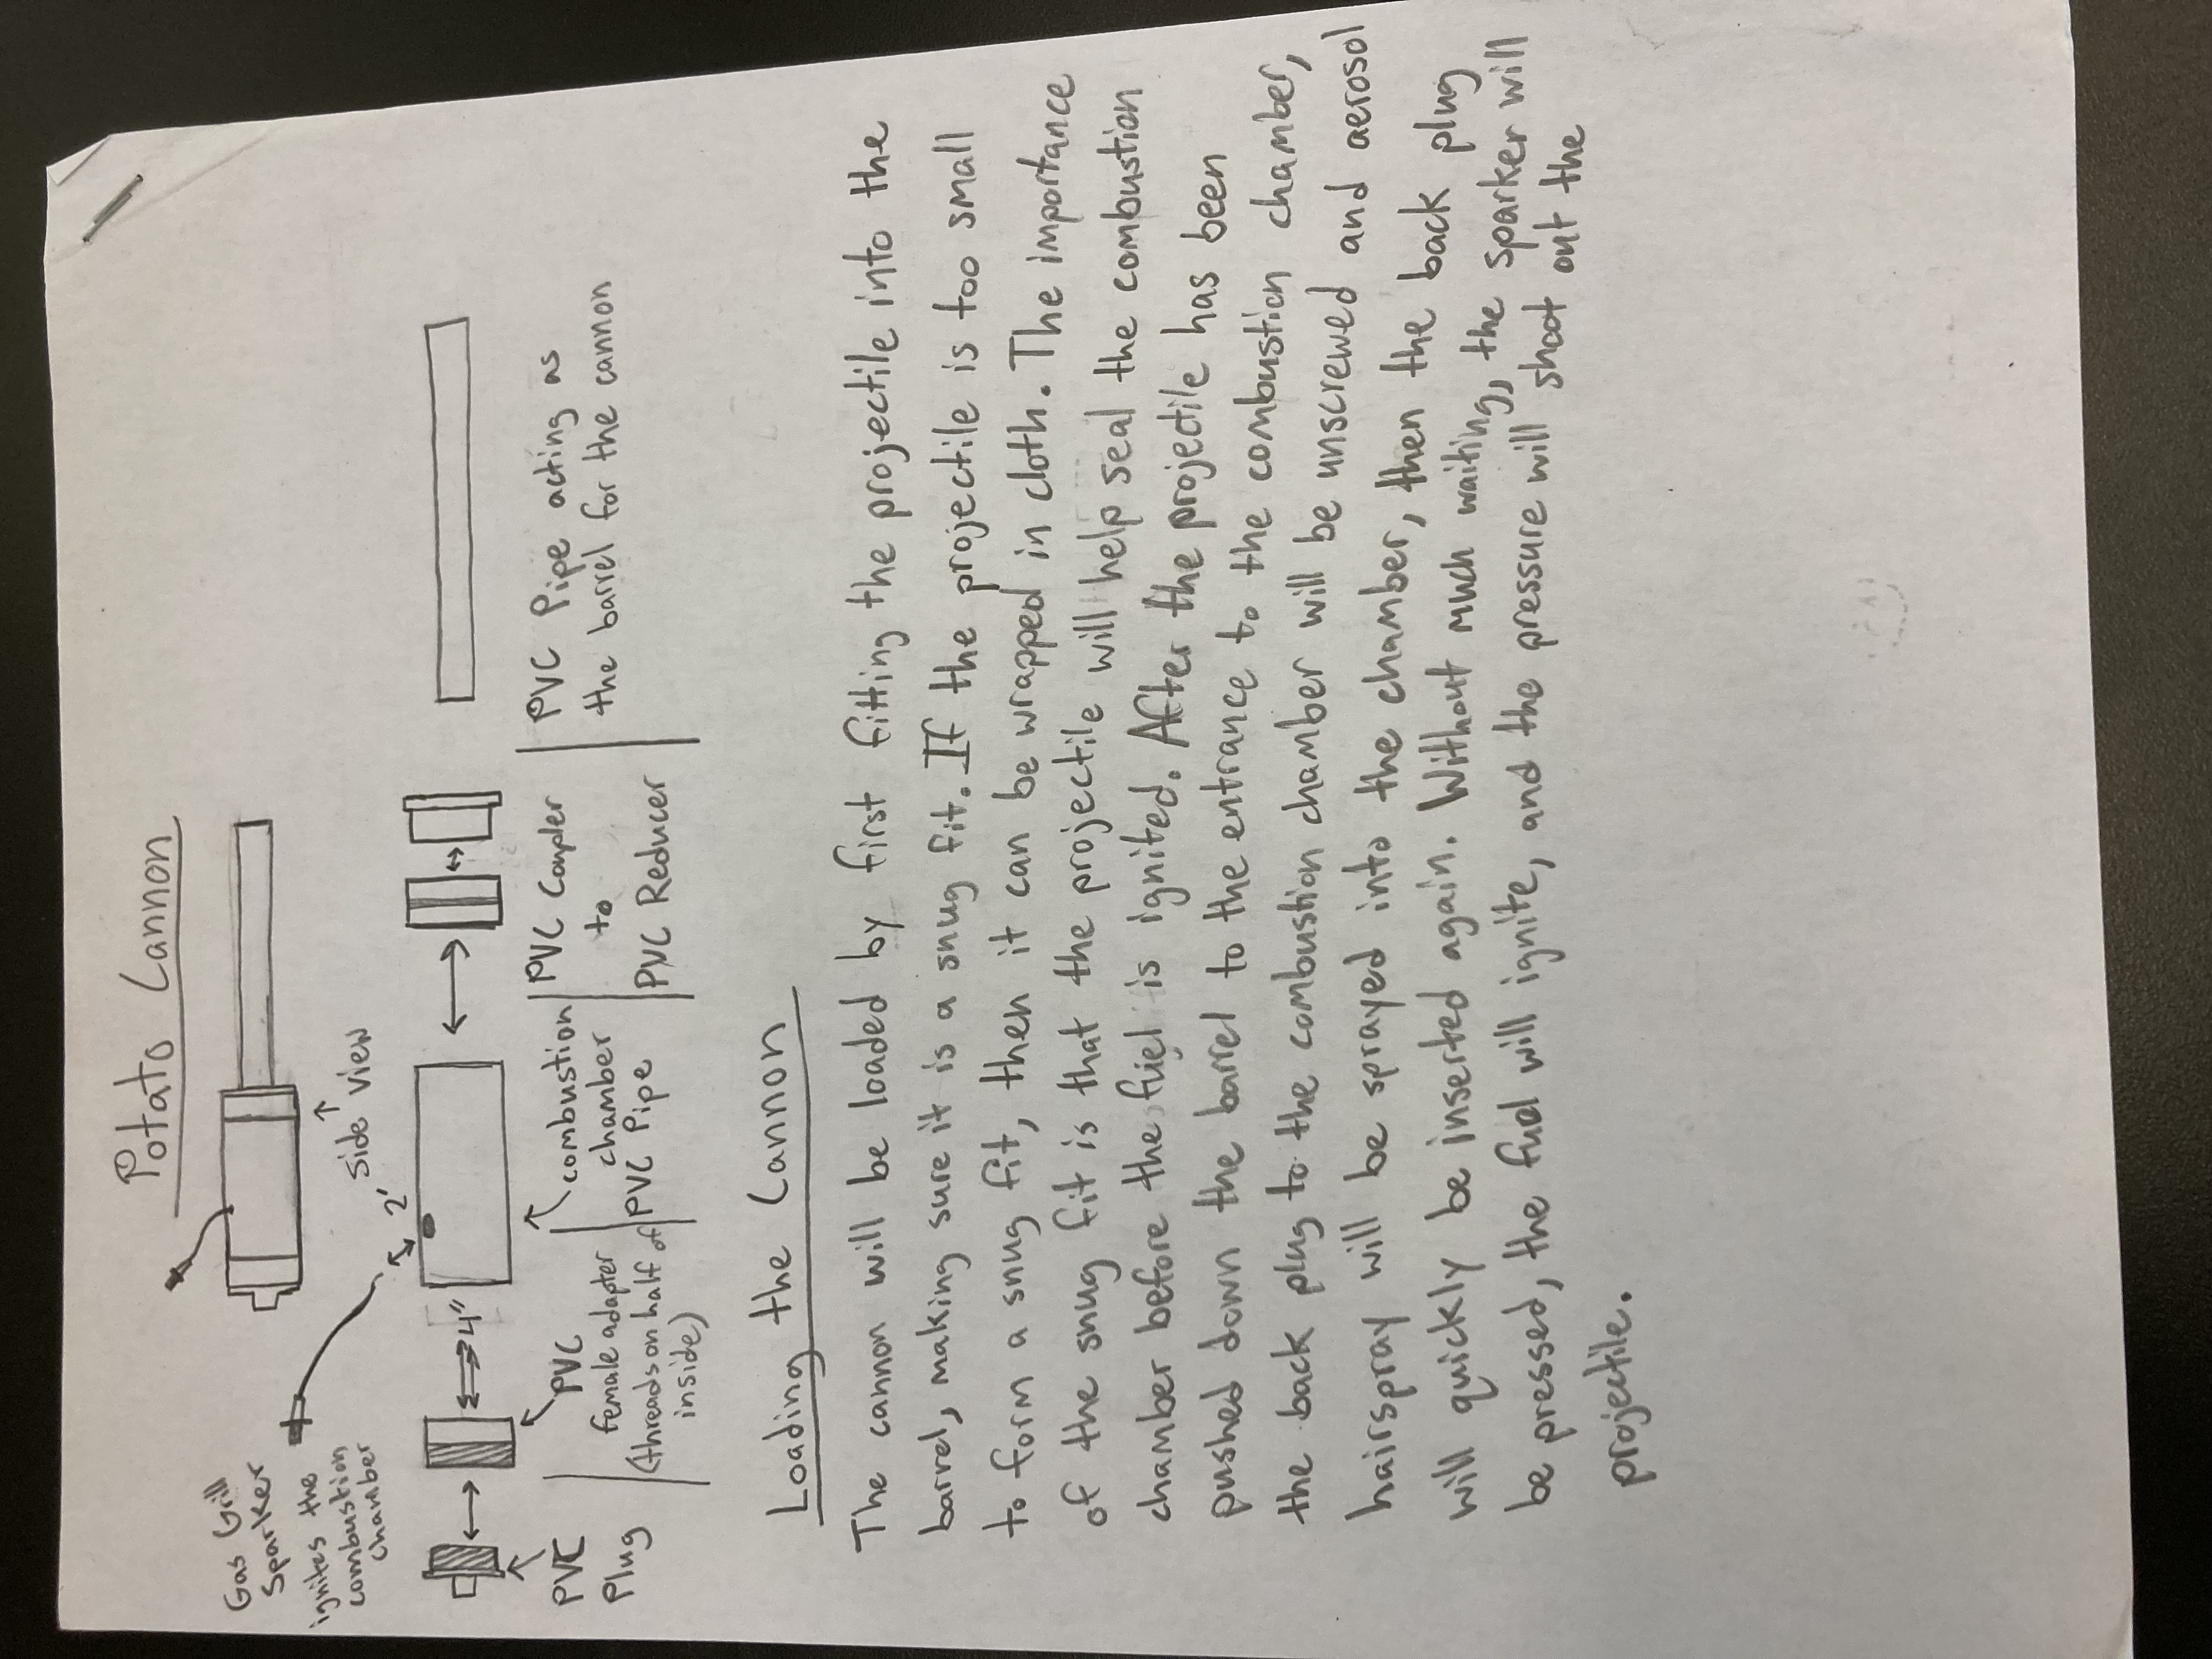 Potato Cannon
Gas Grill
Sparker
ignites the
combustion
chamber
side view
2'
4"
PVC
Plug
PVC
female adapter
(threads on half of
inside)
combustion
chamber
PVC Pipe
PVC Coupler
to
PVC Reducer
PVC Pipe acting as
the barrel for the cannon
Loading the Cannon
The cannon will be loaded by first fitting the projectile into the
barrel, making sure it is a snug fit. If the projectile is too small
to form a snug fit, then it can be wrapped in cloth. The importance
of the snug fit is that the projectile will help seal the combustion
chamber before the fuel is ignited. After the projectile has been
pushed down the barrel to the entrance to the combustion chamber,
the back plug to the combustion chamber will be unscrewed and aerosol
hairspray will be sprayed into the chamber, then the back plug
will quickly be inserted again. Without much waiting, the sparker will
be pressed, the fuel will ignite, and the pressure will shoot out the
projectile.